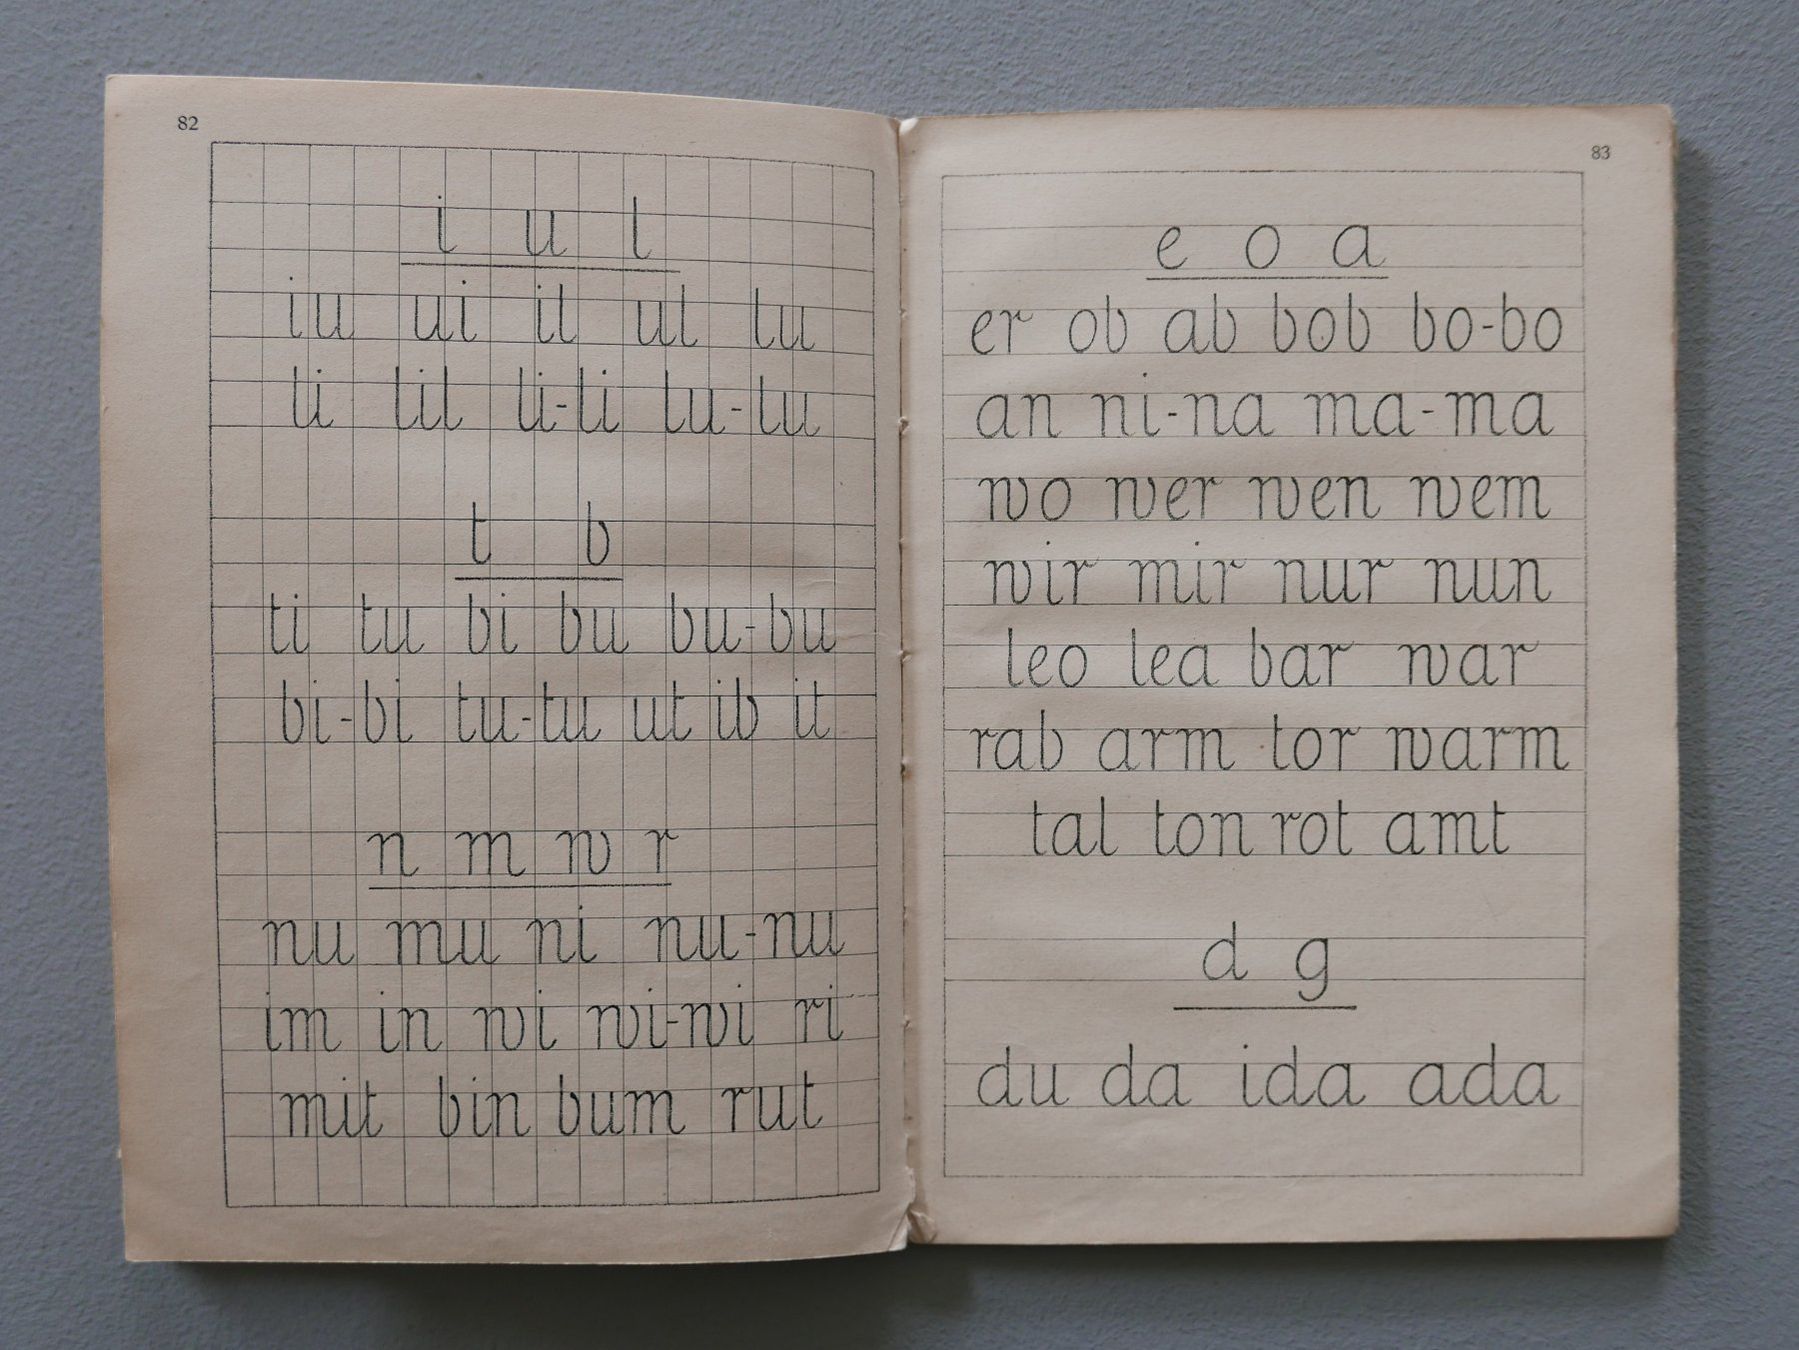 82
i u l
iu ui il ul lu
li lil li-li lu-lu
t b
ti tu bi bu bu-bu
bi-bi tu-tu ut ib it
n m w r
nu mu ni nu-nu
im in wi wi-wi ri
mit bin bum rut
83
e o a
er ob ab bob bo-bo
an ni-na ma-ma
wo wer wen wem
wir mir nur nun
leo lea bar war
rab arm tor warm
tal ton rot amt
d g
du da ida ada